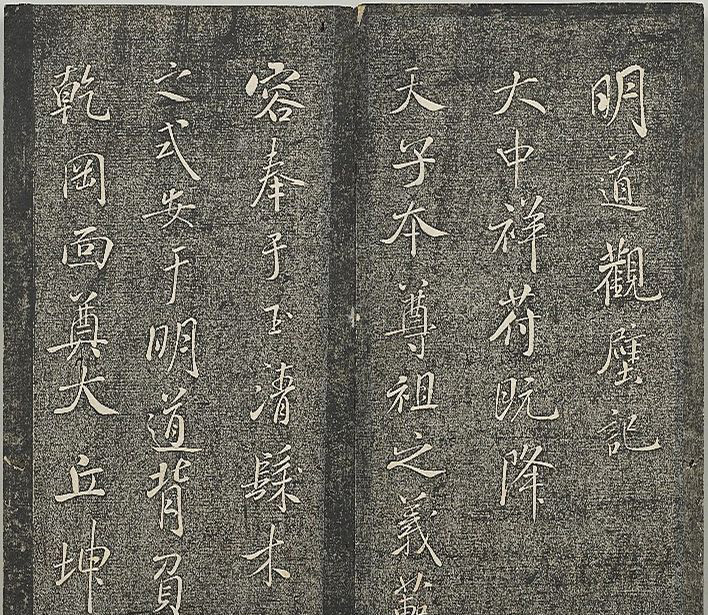 明道觀壁記
大中祥符既降
天子本尊祖之義
容奉于玉清髹木
之式安于明道背負
乾岡面奠大丘坤